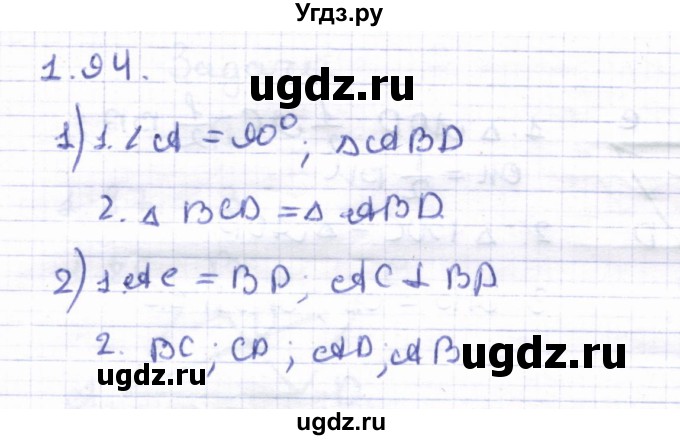 Угдз.ру
1.94.
ugdz.ru
1) 1. ∠A = 90°; △ABD
2. △ BCD = △ ABD.
2) 1. AC = BD; AC ⊥ BD
2. BC; CD; AD; AB
ugdz.ru
ugdz.ru
ugdz.ru